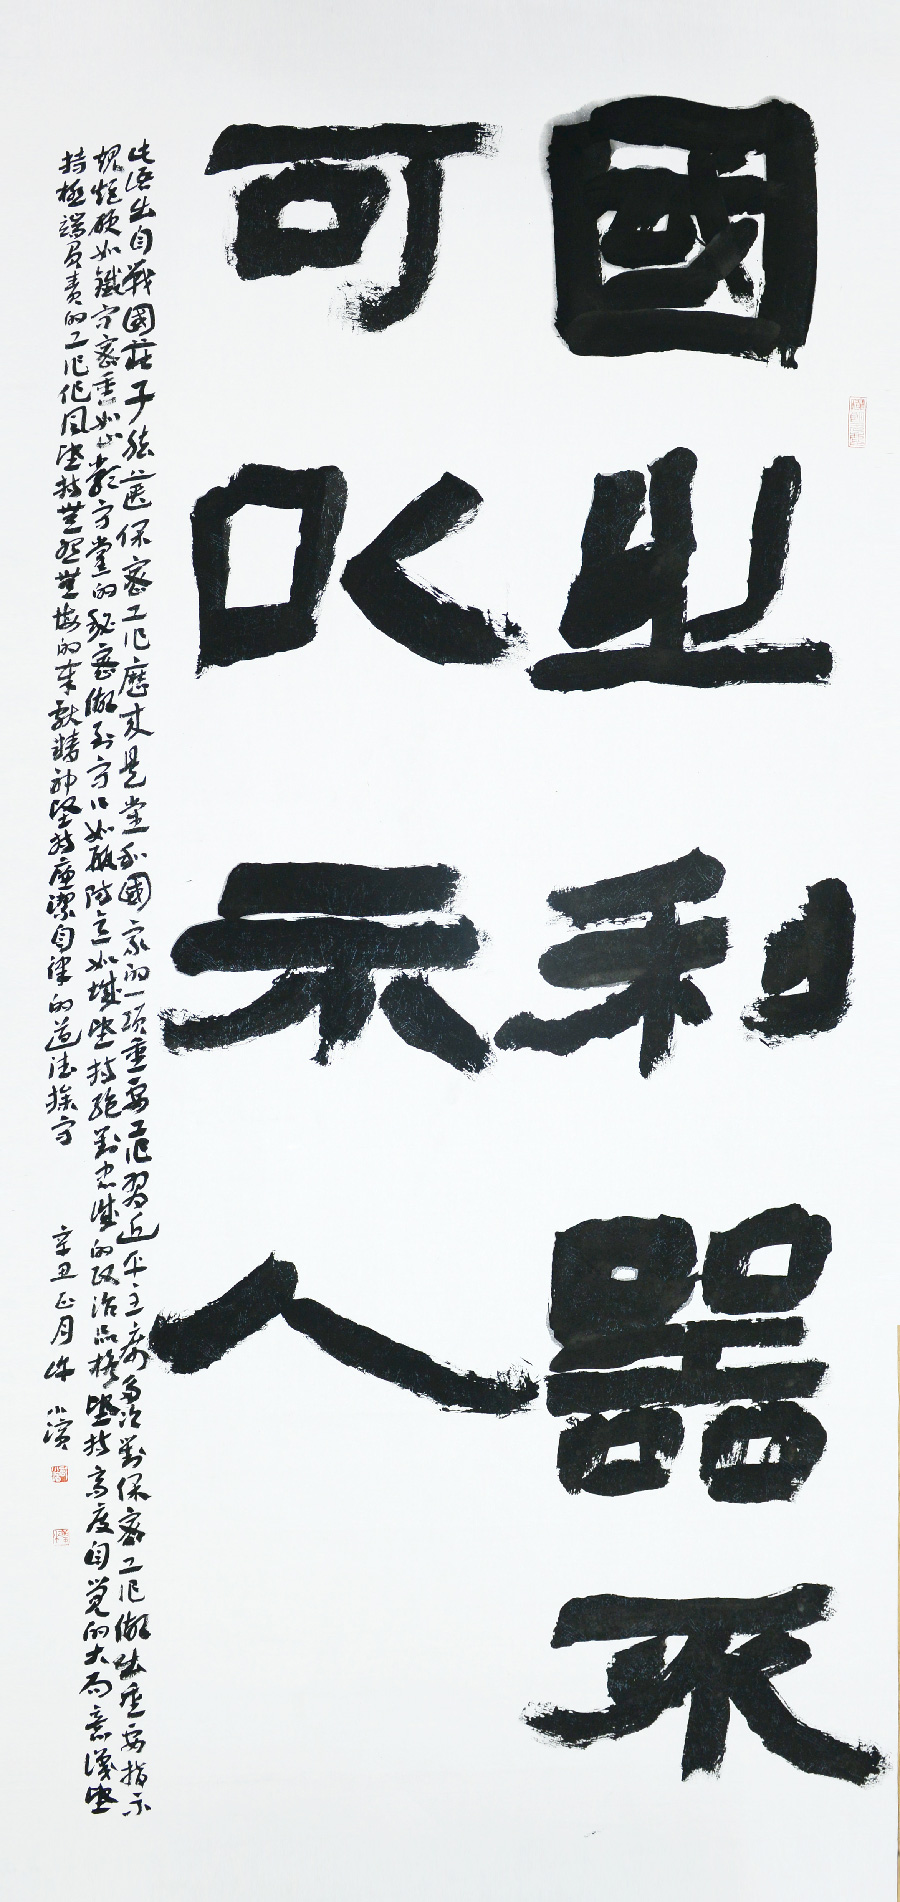 國之利器不
可以示人
此語出自戰國莊子胠篋保密工作歷來是黨和國家的一項重要工作習近平主席多次對保密工作做出重要指示
規矩硬如鐵守密重如山嚴守黨的秘密做到守口如瓶防意如城堅持絕對忠誠的政治品格堅持高度自覺的大局意識堅
持極端負責的工作作風堅持無怨無悔的奉獻精神堅持廉潔自律的道德操守
辛丑正月 小濱